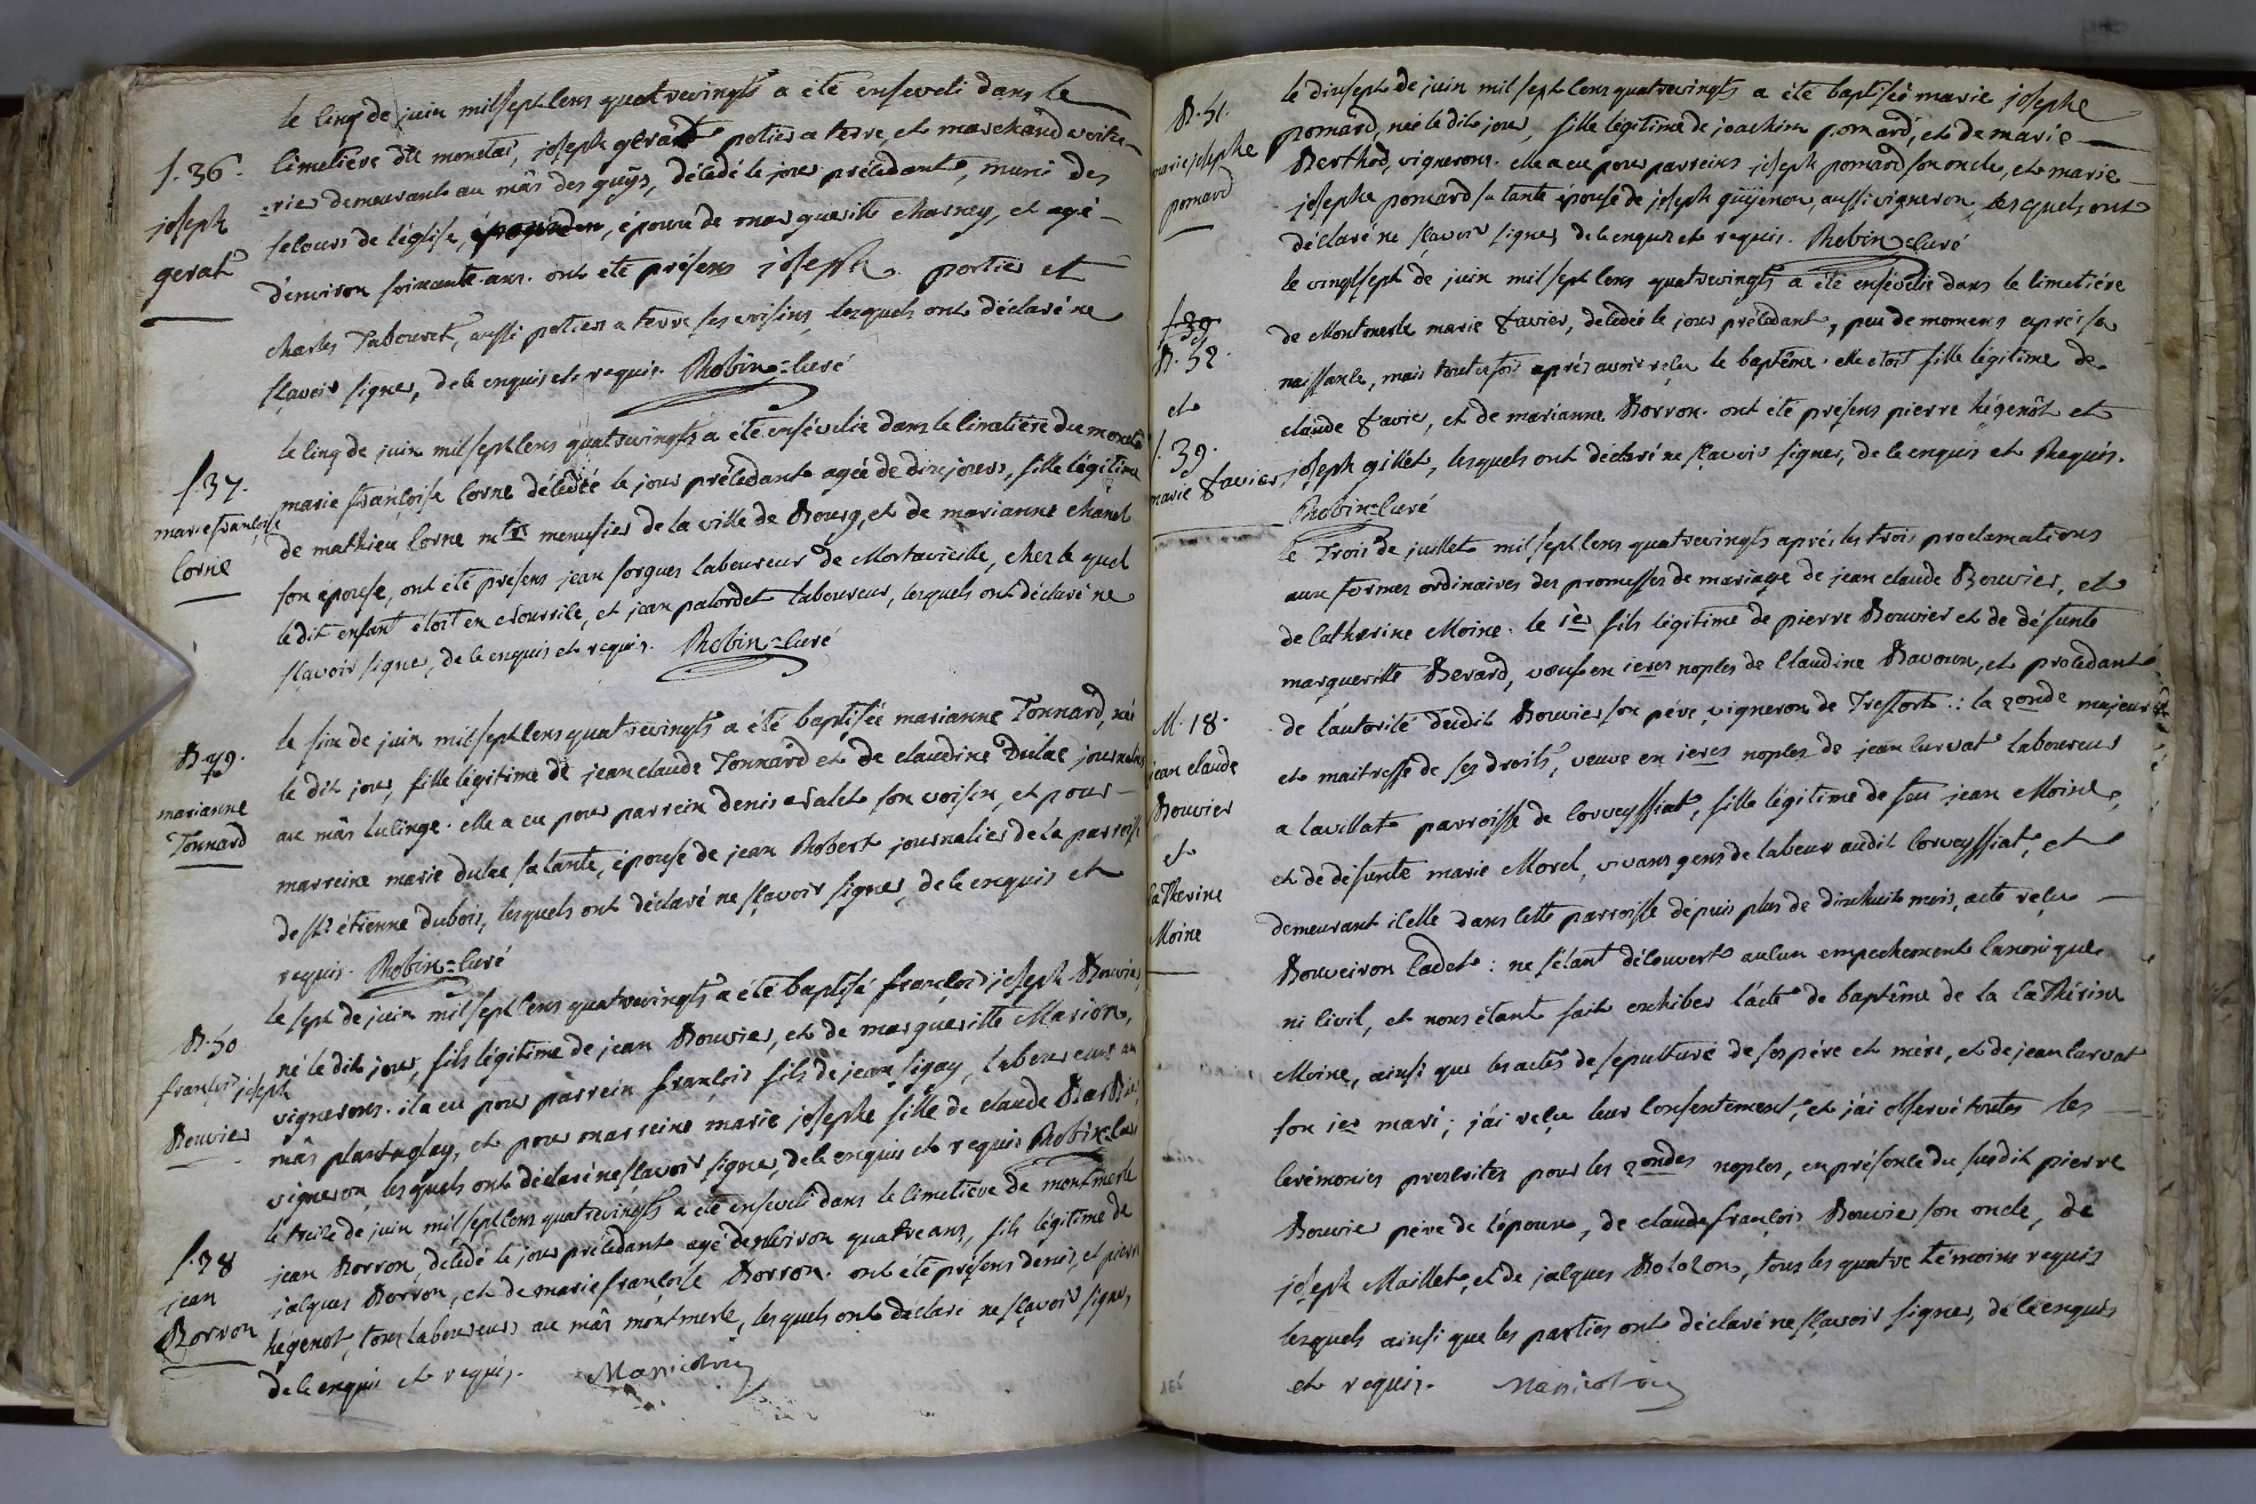 S. 36.
joseph
gerat
le cinq de juin mil sept cens quatrevingts a été enseveli dans le
cimetiére de monetai, joseph gerat potier a terre, et marchand
demeurant au mâs des guÿs, décédé le jour précédant, muni des
secours de l'église, époux de marguerite charney, et agé
d'environ soixante ans. ont été présens joseph portier et
charles Tabouret, aussi potiers a terre ses voisins, lesquels ont déclaré ne
sçavoir signer, de ce enquis et requis. Robin=curé
S. 37.
marie françoise
Corne
le cinq de juin mil sept cens quatrevingts a été ensévelie dans le cimetiére du monetai
marie françoise Corne décédée le jour précédant agée de dix jours, fille légitime
de mathieu Corne mtre menusier de la ville de Bourg, et de marianne chanel
son épouse, ont été présens jean sorgues laboureur de Mortavieille, chez le quel
le dit enfant étoit en nourrice, et jean palordet laboureur, lesquels ont déclaré ne
sçavoir signer, de ce enquis et requis. Robin=curé
B. 49.
marianne
Tonnard
le six de juin mil sept cens quatrevingts a été baptisée marianne Tonnard, née
le dit jour, fille légitime de jean claude Tonnard et de claudine Dulac journaliers
au mâs lulinge. elle a eu pour parrein denis valet son voisin, et pour
marreine marie dulac sa tante, épouse de jean Robert journalier de la parroisse
de st étienne dubois, lesquels ont déclaré ne sçavoir signer, de ce enquis et
requis. Robin=curé
B. 50
françois joseph
Bouvier
le sept de juin mil sept cens quatrevingts a été baptisé françois joseph Bouvier,
né le dit jour, fils légitime de jean Bouvier, et de margueritte Marion,
vignerons. il a eu pour parrein françois fils de jean sigay, laboureur au
mâs plantaglay, et pour marreine marie josephe fille de claude
vigneron, lesquels ont déclaré ne sçavoir signer, de ce enquis et requis Robin=curé
S. 38
jean
Borron
le treize de juin mil sept cens quatrevingts a été enseveli dans le cimetiére de montmerle
jean Borron, décédé le jour précédant agé d'environ quatre ans, fils légitime de
jacques Borron, et de marie françoise Borron. ont été présens denis, et pierre
hégenot, tous laboureurs au mâs montmerle, lesquels ont déclaré ne sçavoir signer,
de ce enquis et requis.
B. 51.
marie josephe
pomard
le dixsept de juin mil sept cens quatrevingts a été baptisée marie josephe
pomard, née le dit jour, fille légitime de joachim pomard, et de marie
Berthod, vignerons. elle a eu pour parreins joseph pomard son oncle, et marie
josephe pomard sa tante épouse de joseph guÿenon, aussi vigneron, lesquels ont
déclaré ne sçavoir signer, de ce enquis et requis. Robin=curé
B. 52.
et
S. 39.
marie favier
le vingtsept de juin mil sept cens quatrevingts a été ensévelie dans le cimetiére
de Montmerle marie favier, décédée le jour précédant, peu de momens aprés sa
naissance, mais toutefois aprés avoir reçu le baptême. elle étoit fille légitime de
claude favier, et de marianne Borron. ont été présens pierre hégenôt et
joseph gillet, lesquels ont déclaré ne sçavoir signer, de ce enquis et Requis.
Robin=curé
M. 18.
jean claude
Bouvier
et
catherine
Moine
le Trois de juillet mil sept cens quatrevingts aprés les trois proclamations
aux formes ordinaires des promesses de mariage de jean claude Bouvier, et
de catherine Moine. le 1er fils légitime de pierre Bouvier et de défunte
marguerille Berard, veuf en 1eres noples de Claudine Bavoux, et procedant
de l'autorité dudit Bouvier son pére, vigneron de Treffort: la 2onde majeure
et maitresse de ses droits, veuve en 1eres noples de jean curvat laboureur
a lavillat parroisse de Corveyssiat, fille légitime de feu jean Moine,
et de défunte marie Morel, vivans gens de labeur audit Corveyssiat, et
demeurant icelle dans cette parroisse dépuis plus de dixhuit mois, acte reçu
Bouveiron Cadet: ne s'étant découvert aucun empechement canonique
ni civil, et nous étant fait exhiber l'acte de baptême de la caThérine
Moine, ainsi que les actes de sepulture de ses pére et mére, et de jean curvat
son 1er mari; j'ai reçu leur consentement, et j'ai observé toutes les
cerémonies prescrites pour les 2ondes noples, en présence du susdit pierre
Bouvier pére de l'époux, de claude françois Bouvier son oncle, de
joseph Maillet, et de jacques Bolozon, tous les quatre témoins requis
lesquels ainsi que les parties ont déclaré ne sçavoir signer, de ce enquis
et requis.